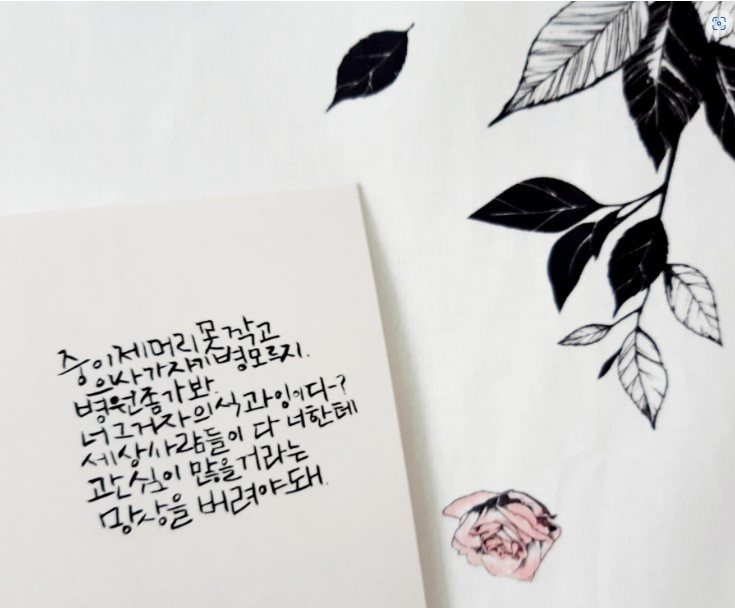 중이제머리못깎고
의사가자기병모르지.
병원좀가봐.
너그거자의식과잉이다~?
세상사람들이 다 너한테
관심이 많을거라는
망상을 버려야돼.